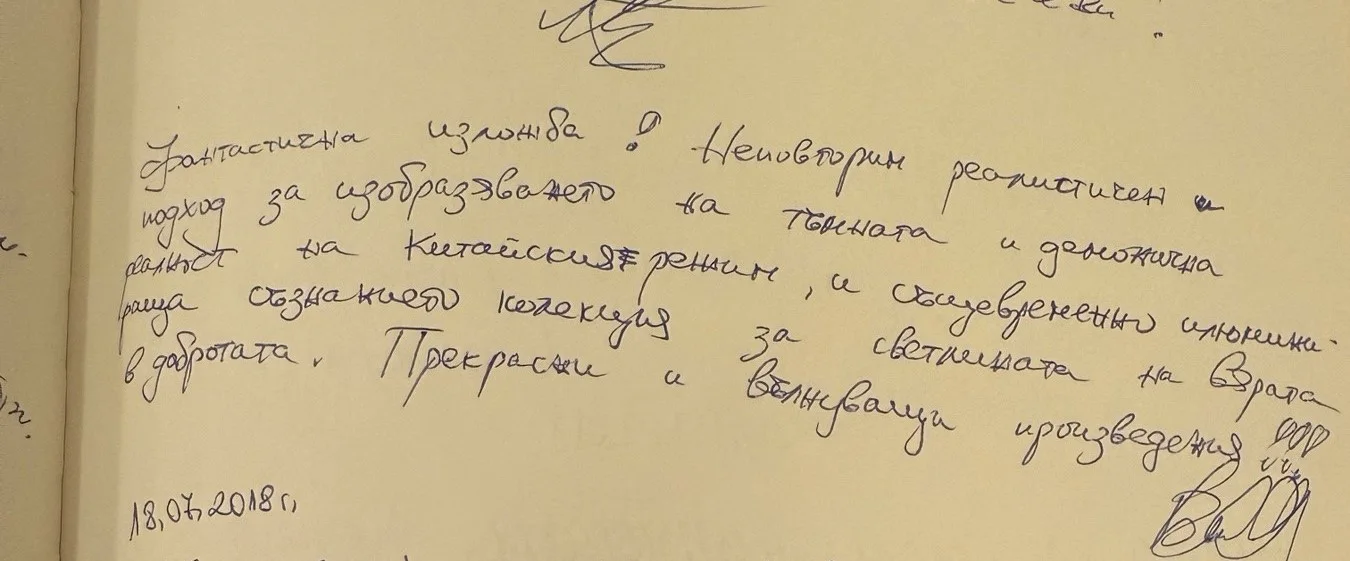 Фантастична изложба! Неповторим реалистичен и
подход за изобразяването на тъмната и демонична
реалност на Китайския режим, и същевременно илюмини-
раща съзнанието колекция за светлината на вярата
в добротата. Прекрасни и вълнуващи произведения!!!
18.07.2018г.